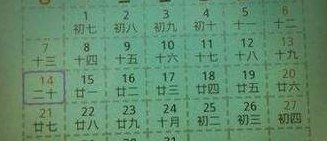 1 2 3 4 5 6
初七 初八 初九 初十 十一 十二
7 8 9 10 11 12 13
十三 十四 十五 十六 十七 十八 十九
14 15 16 17 18 19 20
二十 廿一 廿二 廿三 廿四 廿五 廿六
21 22 23 24 25 26 27
廿七 廿八 廿九 十月 初二 初三 初四
31